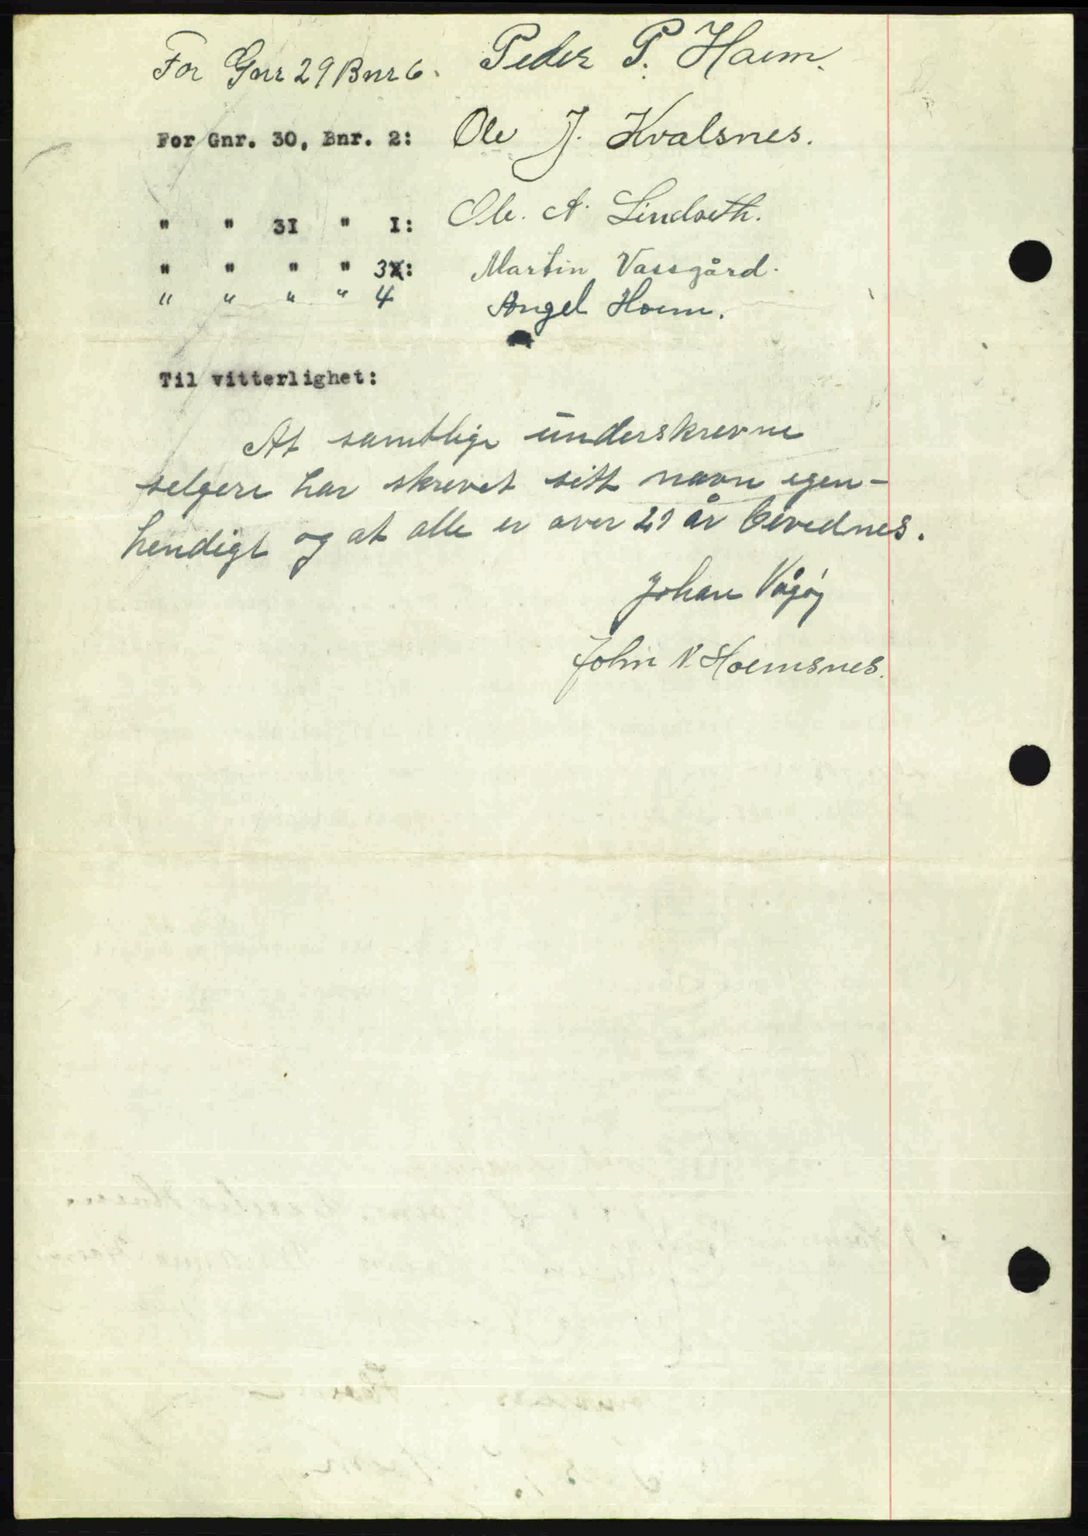 For Gnr 29 Bnr 6. Peder P. Hoem.
For Gnr. 30, Bnr. 2: Ole J. Kvalsnes.
" " 31 " 1: Ole. A. Lindseth.
" " " " 3: Martin Vassgård.
" " " " 4 Angel Hoem.
Til vitterlighet:
At samtlige underskrevne
selgere har skrevet sitt navn egen-
hendigt og at alle er over 21 år bevidnes.
Johan Vågøy
John N. Hoemsnes.